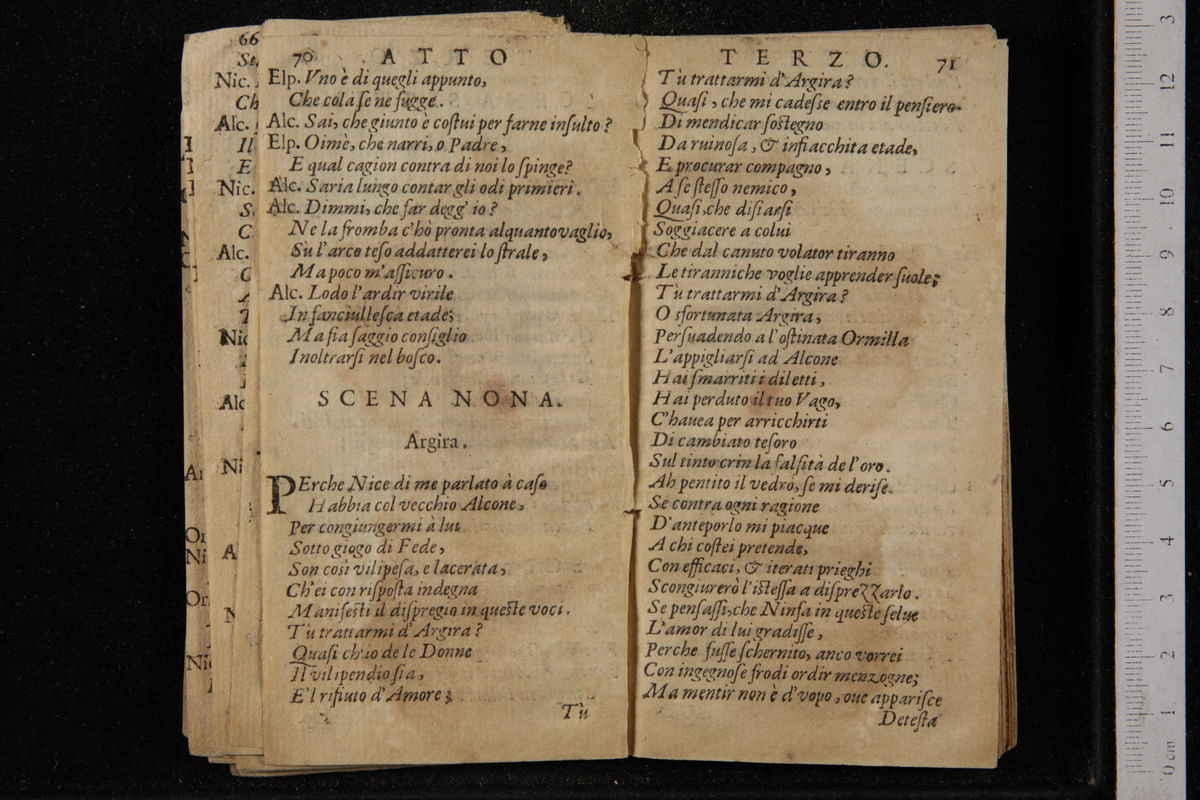 70 ATTO
Elp. Vno è di quegli appunto,
Che colà ſe ne fugge.
Alc. Sai, che giunto è coſtui per farne inſulto?
Elp. Oimè, che narri, o Padre,
E qual cagion contra di noi lo ſpinge?
Alc. Saria lungo contar gli odi primieri.
Alc. Dimmi, che far degg' io?
Ne la fromba c'hò pronta alquanto vaglio,
Sù l'arco teſo addatterei lo ſtrale,
Ma poco m'aſſicuro.
Alc. Lodo l'ardir virile
In fanciulleſca etade;
Ma fia ſaggio conſiglio
Inoltrarſi nel boſco.
SCENA NONA.
Argira.
PErche Nice di me parlato à caſo
Habbia col vecchio Alcone,
Per congiungermi à lui
Sotto giogo di Fede,
Son così vilipeſa, e lacerata,
Ch'ei con riſpoſta indegna
Manifeſti il diſpregio in queſte voci.
Tù trattarmi d'Argira?
Quaſi ch'io de le Donne
Il vilipendio ſia,
E'l rifiuto d'Amore;
Tù
TERZO. 71
Tù trattarmi d'Argira?
Quaſi, che mi cadeſse entro il penſiero
Di mendicar ſoſtegno
Da ruinoſa, & infiacchita etade,
E procurar compagno,
A ſe ſteſſo nemico,
Quaſi, che diſiaſſi
Soggiacere a colui
Che dal canuto volator tiranno
Le tiranniche voglie apprender ſuole;
Tù trattarmi d'Argira?
O sfortunata Argira,
Perſuadendo a l'oſtinata Ormilla
L'appigliarſi ad Alcone
Hai ſmarriti i diletti,
Hai perduto il tuo Vago,
C'hauea per arricchirti
Di cambiato teſoro
Sul tinto crin la falſità de l'oro.
Ah pentito il vedrò, ſe mi deriſe.
Se contra ogni ragione
D'anteporlo mi piacque
A chi coſtei pretende,
Con efficaci, & iterati prieghi
Scongiurerò l'iſteſſa a diſprezzarlo.
Se penſaſſi, che Ninfa in queſte ſelue
L'amor di lui gradiſſe,
Perche fuſſe ſchernito, anco vorrei
Con ingegnoſe frodi ordir menzogne;
Ma mentir non è d'vopo, oue appariſce
Deteſta